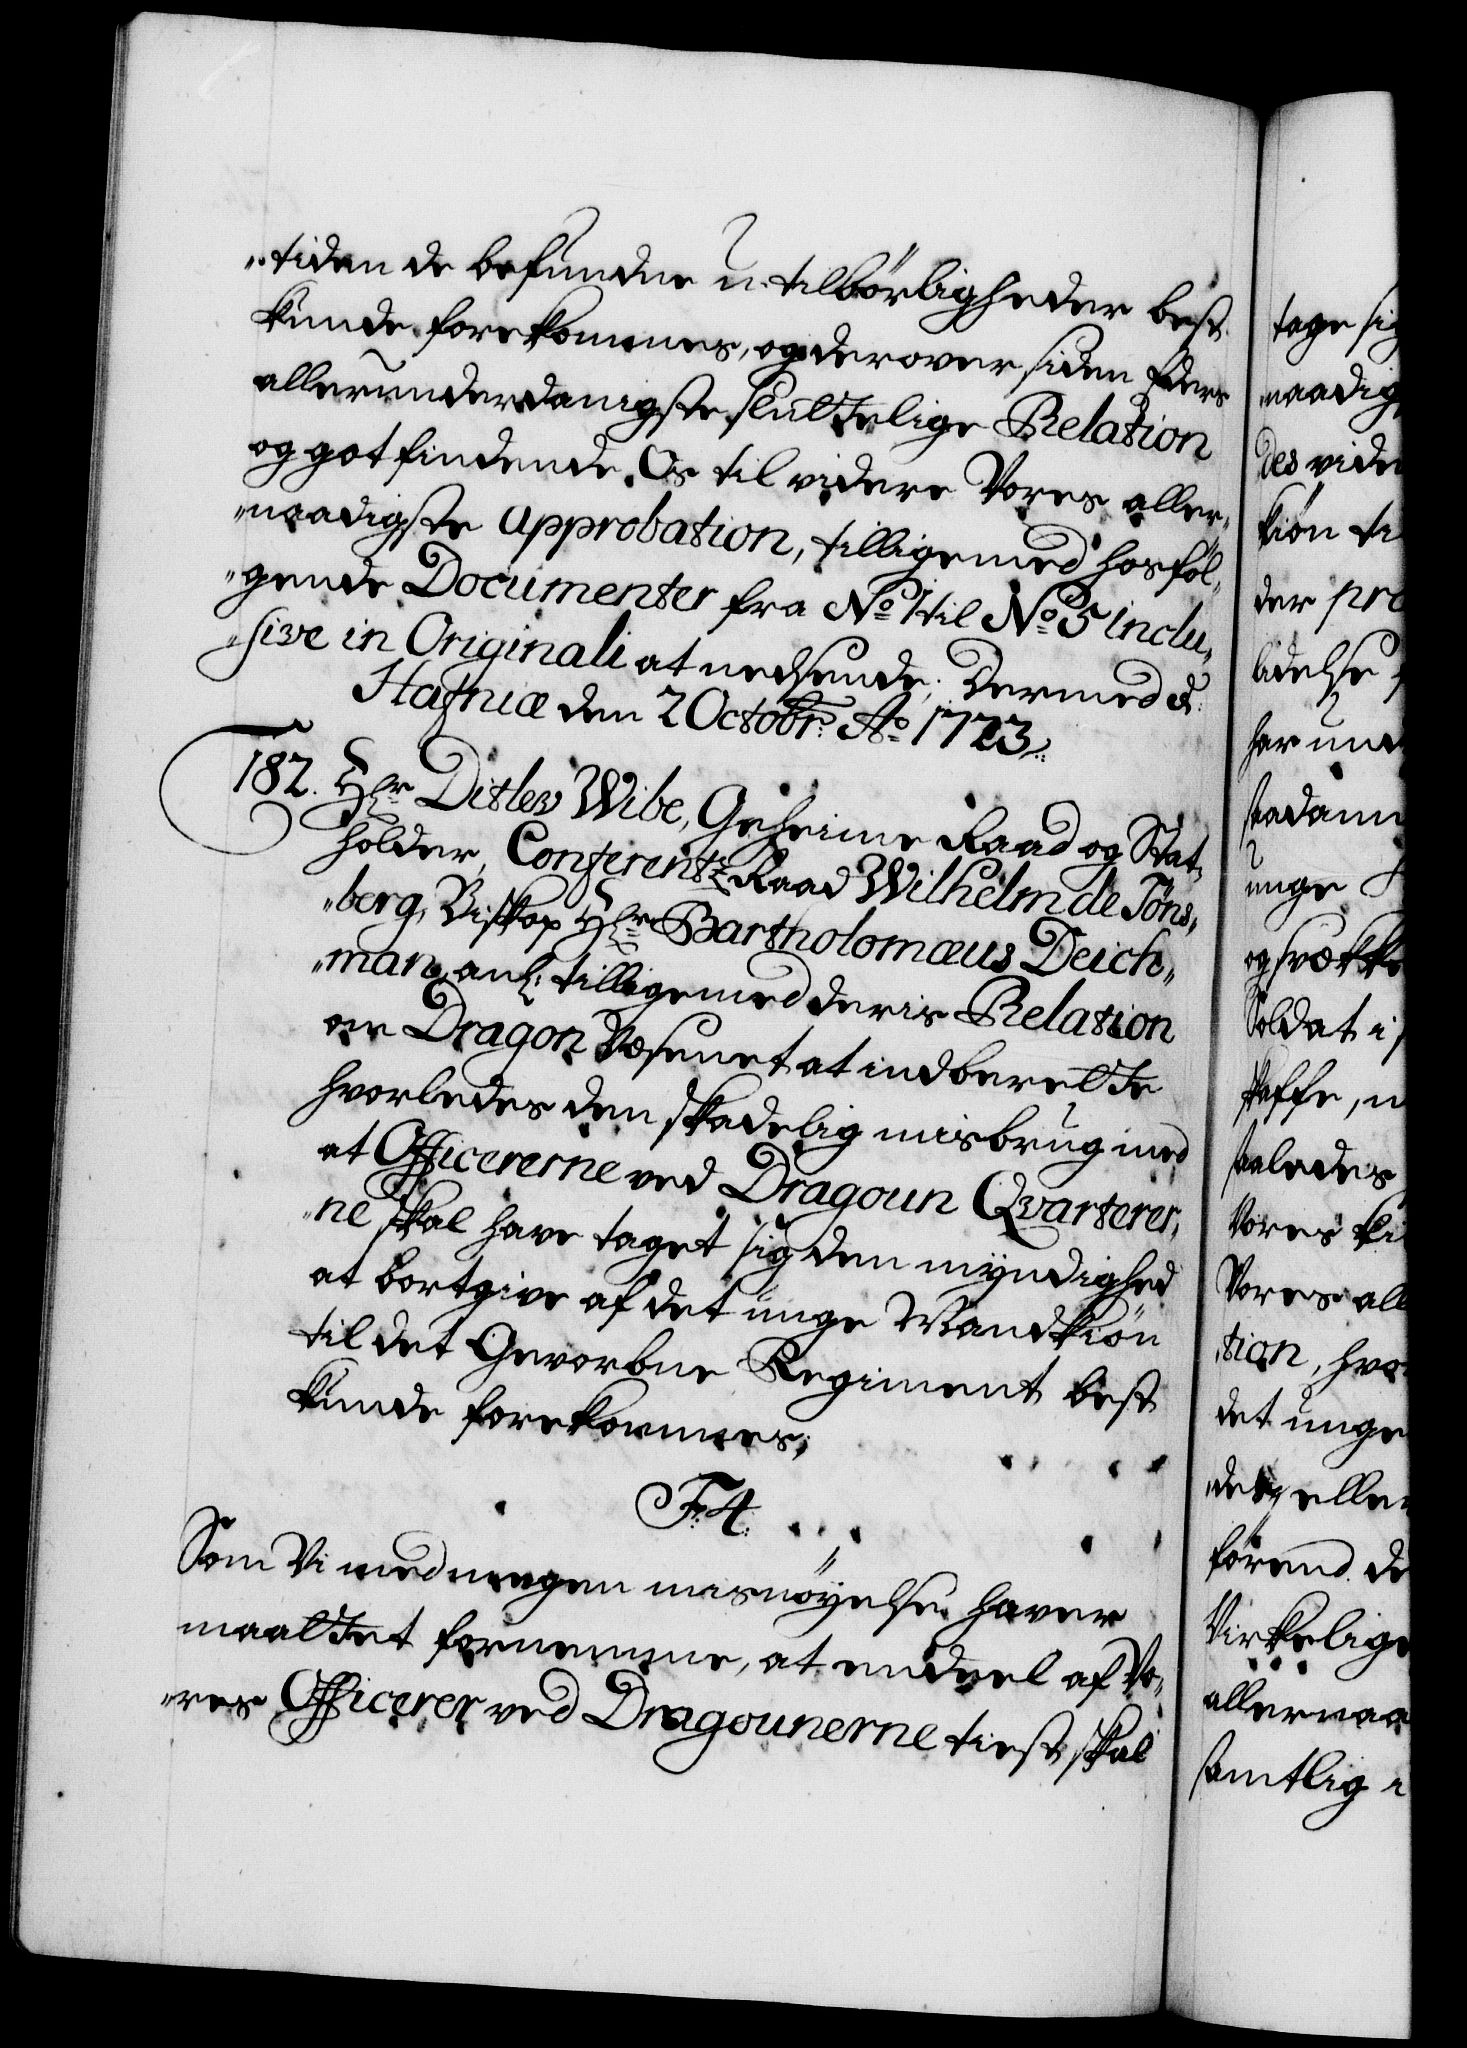 „tiden de befundne u-tilbörligheder best
kunde forekommes, og derover siden Eders
allerunderdanigste sluttelige Relation
og got findende Os til videre Vores aller„
„naadigste approbation, tilligemed hosföl„
„gende Documenter fra No 1 til No 5 inclu„
„sive in Originali at nedsende, Dermed &.
Hafniæ den 2 Octobr: Ao 1723.
182. Hr Ditlev Wibe, Geheime Raad og Stat„
holder, Conferentz Raad Wilhelm de Töns„
„berg, Biskop Hr Bartholomæus Deich„
„man anl: tilligemed deris Relation
om Dragon Væsenet at indberette
hvorledes den skadelig misbrug med
at Officererne ved Dragoun Qvarterer„
„ne skal have taget sig den myndighed
at bortgive af det unge Mandkiön
til det Gevorbne Regiment best
kunde forekommes,
F. 4.
Som Vi med megen misnöyelse haver
maattet fornemme, at endeel af Vo„
„res Officerer ved Dragounerne tiest skal
tage sig
naadig
des vide
kiön ti
der pro
lidelse
har und
saadann
unge
og svække
Soldat i
skaffe, u
saaledes
Vores
Vores all
tion, hvo
det unge
eller
förend de
Virkelige
allernaa
samtlig i